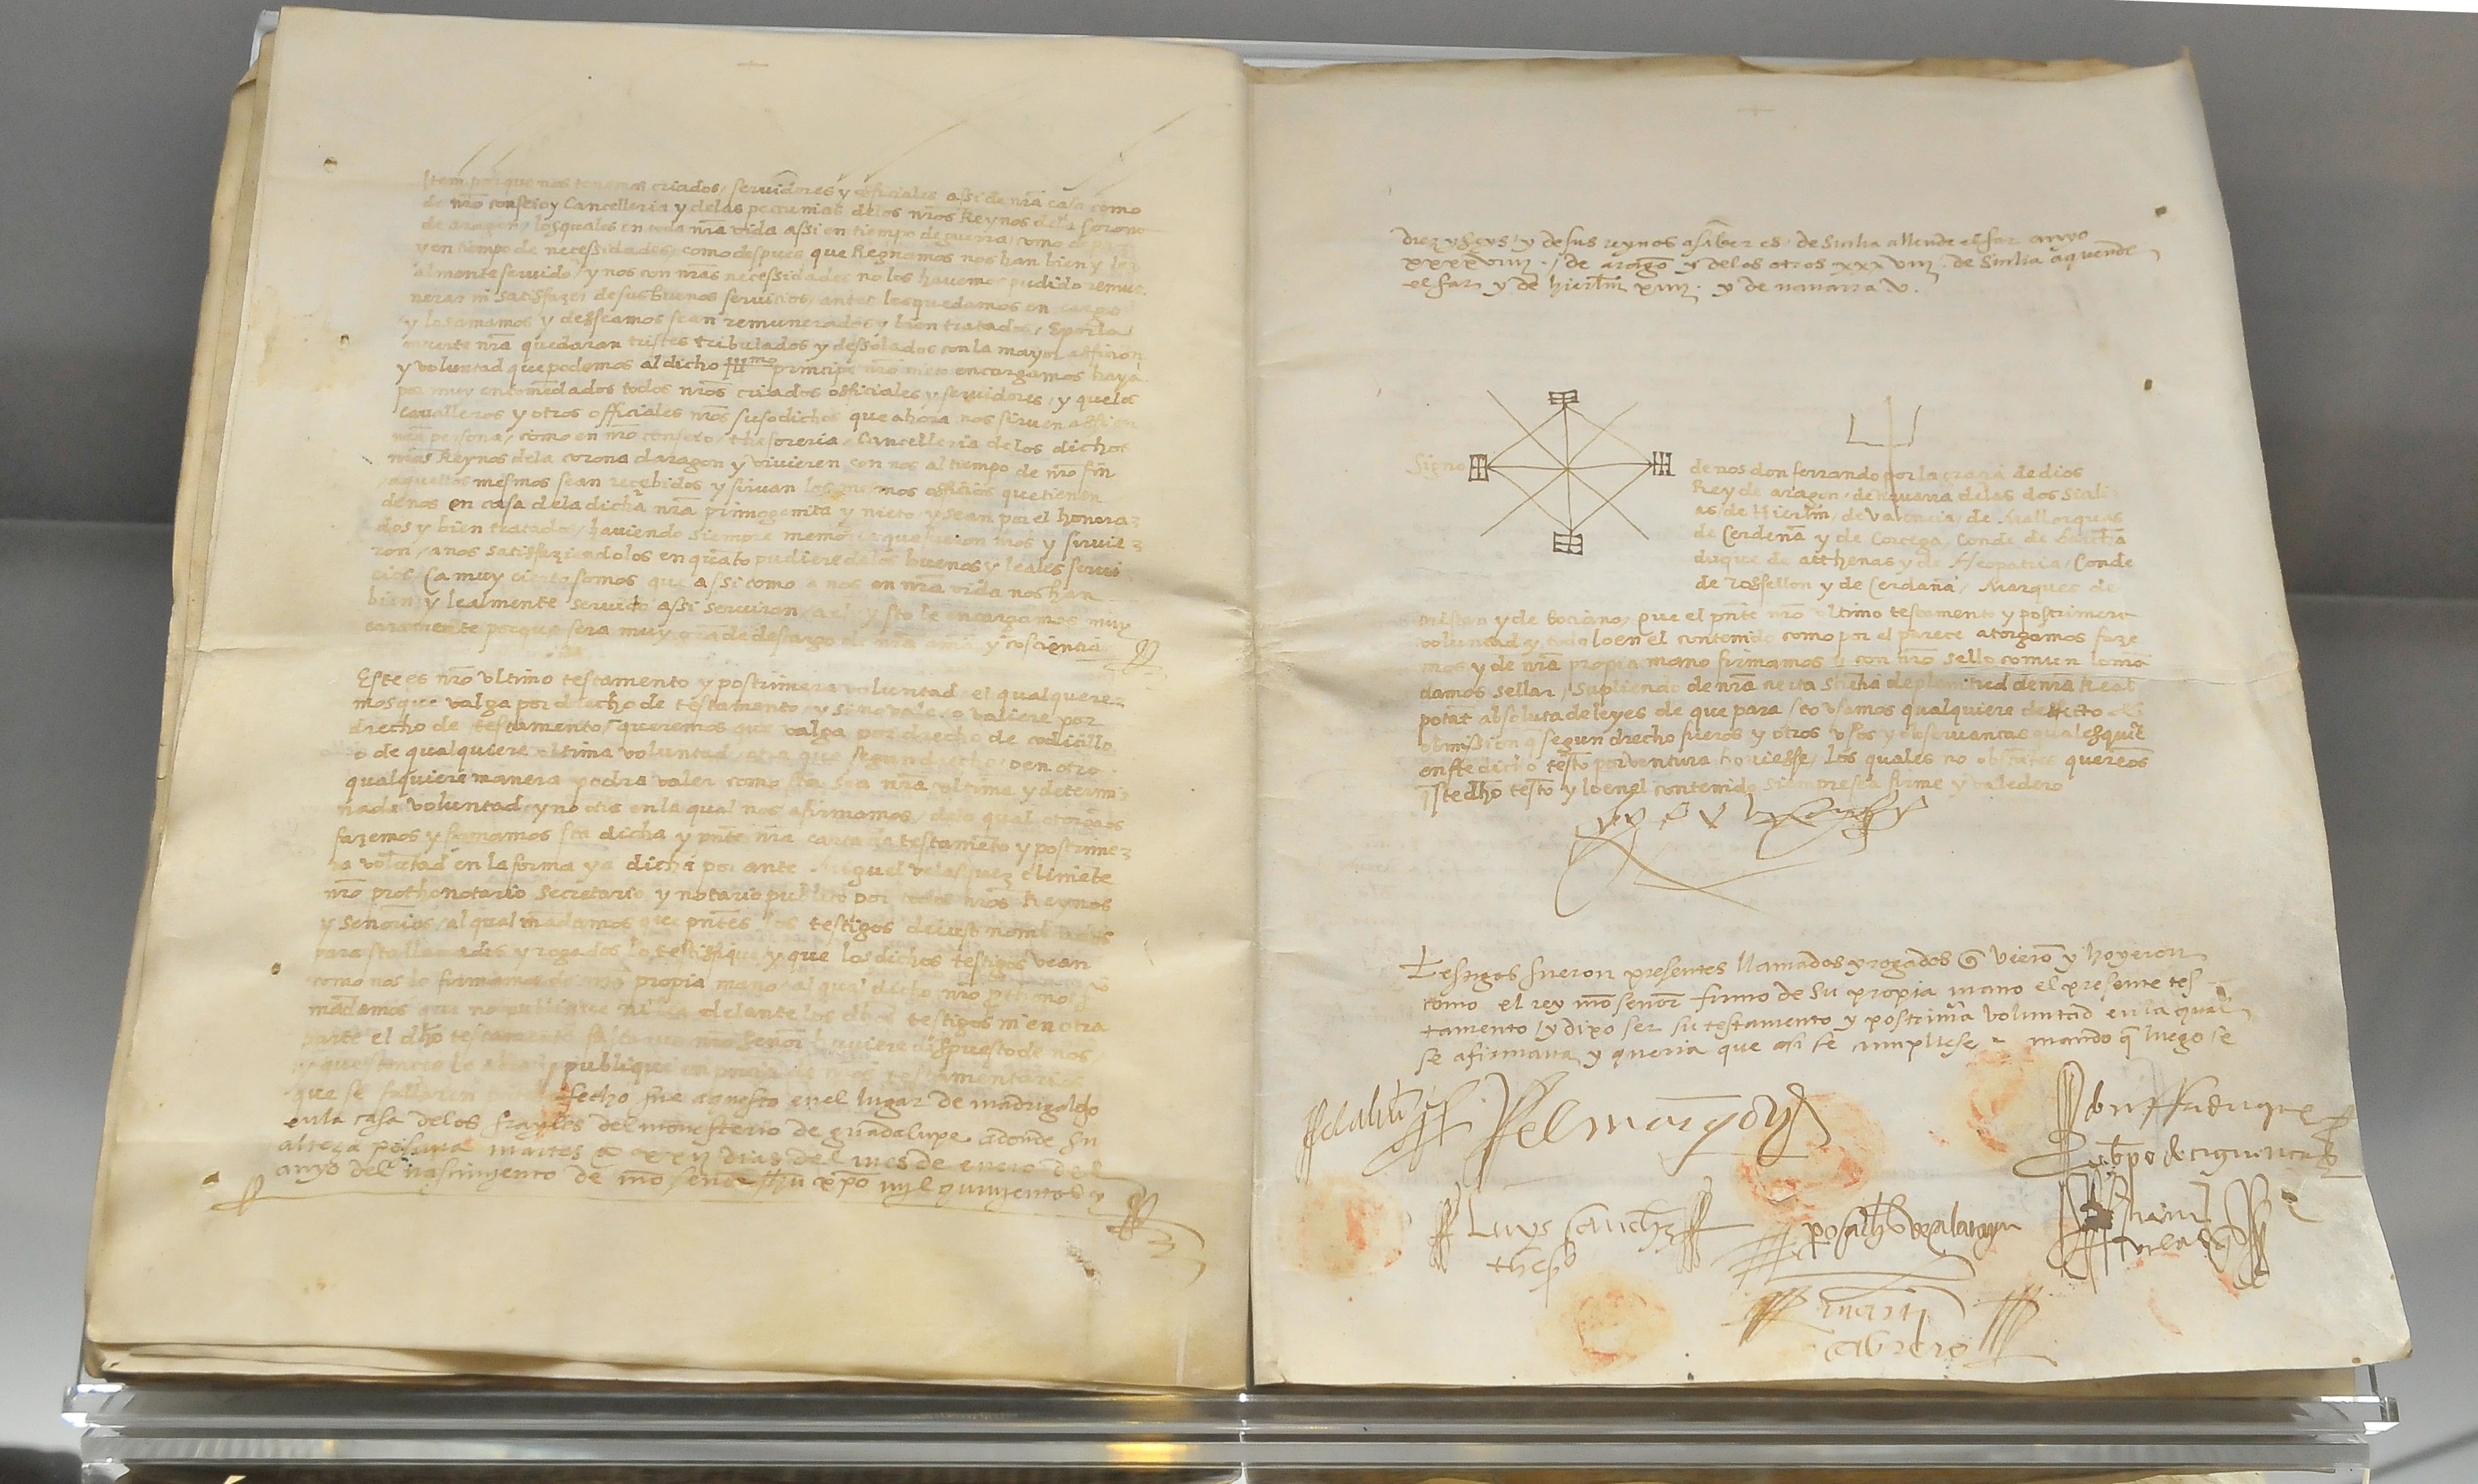 Item porque nos tenemos criados, servidores y officiales assi de nra casa como
de nro consejo y Cancelleria y delas peccunias delos nros Reynos dela Corona
de aragon, los quales en toda nra vida assi en tiempo de guerra, como de paz
y en tiempo de necessidades, como despues que Regnamos nos han bien y le
almente servido, y nos con nras necessidades no los havemos podido remu
nerar ni satisfazer de sus buenos servicios, antes les quedamos en cargo
y los amamos y desseamos sean remunerados y bien tratados, E por la
muerte nra quedaran tristes tribulados y dessolados con la mayor afficion
y voluntad que podemos al dicho Illmo principe nro nieto encargamos haya
por muy encomedados todos nros criados officiales y servidores, y que los
cavalleros y otros officiales nros susodichos que ahora nos sirven assi en
nra persona, como en nro consejo, thesoreria, Cancelleria de los dichos
nros Reynos dela corona daragon y vivieren con nos al tiempo de nro fin
aquellos mesmos sean recebidos y sirvan los mesmos officios que tienen
de nos en casa dela dicha nra primogenita y nieto, y sean por el honora
dos y bien tratados, haviendo siempre memoria que fueron nros y sirvie
ron, a nos satisfaziendolos en quato pudiere delos buenos y leales servi
cios, Ca muy cierto somos que assi como a nos en nra vida nos han
bien y lealmente servido assi serviran a el, y sto le encargamos muy
caramente porque sera muy grade descargo de nra aima y cosciencia
Este es nro ultimo testamento y postrimera voluntad, el qual quere
mos que valga por drecho de testamento, y si no vale, o valiere por
drecho de testamento, queremos que valga por drecho de codicillo
o de qualquiere ultima voluntad, otra que segun drecho, o en otra
qualquiere manera podra valer como sta sea nra ultima y determi
nada voluntad, y no otra en la qual nos afirmamos, dela qual otorgamos
fazemos y firmamos sta dicha y pnte nra carta de testameto y postrime
ra volutad en la forma ya dicha por ante Miguel Velasquez climete
nro prothonotario secretario y notario publico por todos nros Reynos
y señorios, al qual madamos que pntes los testigos deiuso nombrados
para sto llamados y rogados lo testiffique, y que los dichos testigos vean
como nos lo firmamos de nra propia mano, al qual dicho nro
madamos que no publique ni lea delante los dhos testigos ni en otra
parte el dho testamento fasta que nro señor huviere dispuesto de nos
publique
que se fallaren fecho fue aquesto en el lugar de madrigalejo
en la casa delos frayles del monesterio de guadalupe adonde su
alteza posava martes a xxii dias del mes de enero del
anyo del nascimiento de nro senor Jhu xpo mil quinientos y
diez y seys, y de sus reynos a saber es, de Sicilia allende el far anyo
xxxxviiii, de arago y delos otros xxxviii, de Sicilia aquende
el far y de hierlm xiiii. y de navarra v.
Signo
de nos don ferrando por la gracia de dios
Rey de aragon, de navarra delas dos Sicili
as, de Hierlm, de valencia, de Mallorquas
de Cerdeña y de Corcega, Conde de Barchna
duque de atthenas y de Neopatria, Conde
de rossellon y de Cerdaña, Marques de
oristan y de Gociano, que el pnte nro ultimo testamento y postrimera
voluntad y todo lo en el contenido como por el parece atorgamos faze
mos y de nra propia mano firmamos y con nro sello comun lo ma
damos sellar, Supliendo de nra cierta sciencia de plenitud de nra Real
potat absoluta de leyes de que para sto usamos qualquiere deffecto o
obmission q segun drecho fueros y otros usos y observancas quales quier
en ste dicho testo por ventura hoviesse, los quales no obstates queremos
q ste dho testo y lo en el contenido siempre sea firme y valedero
Testigos fueron presentes llamados y rogados q viero y hoyeron
como el rey nro senor firmo de su propia mano el presente tes
tamento, y dixo ser su testamento y postrima voluntad en la qual
se afirmava y queria que asi se cumpliese mando q luego se
Luys sanchez
thesro
martin
cabrero